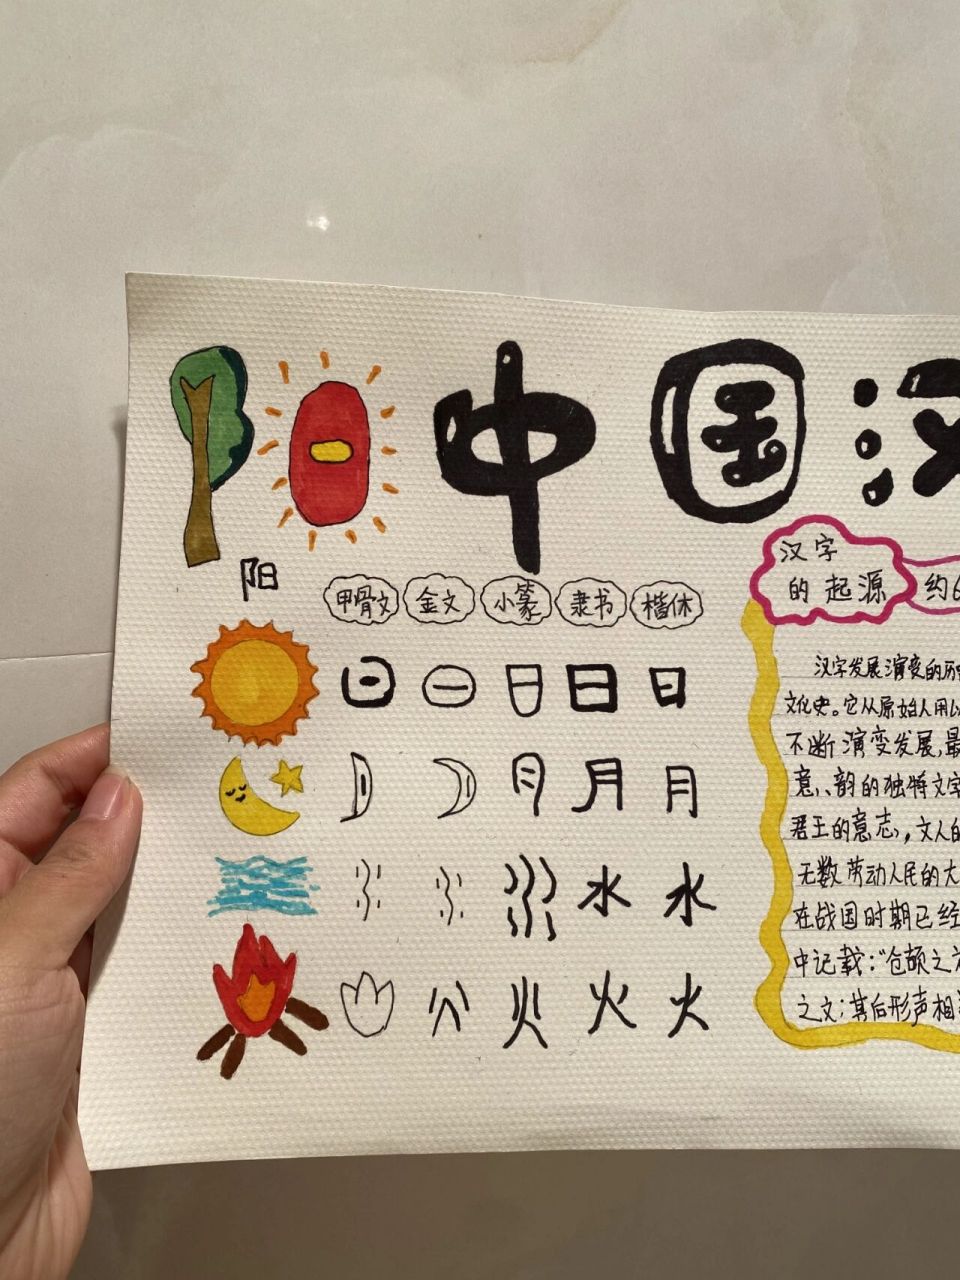 中国汉
阳
甲骨文 金文 小篆 隶书 楷休
日 日 日 日 日
月 月 月 月 月
水 水 水 水 水
火 火 火 火 火
汉字
的起源
约6
汉字发展演变的历
文化史。它从原始人用以
不断演变发展,最
意、韵的独特文字
君王的意志,文人的
无数劳动人民的大
在战国时期已经
中记载:“仓颉之
之文;其后形声相